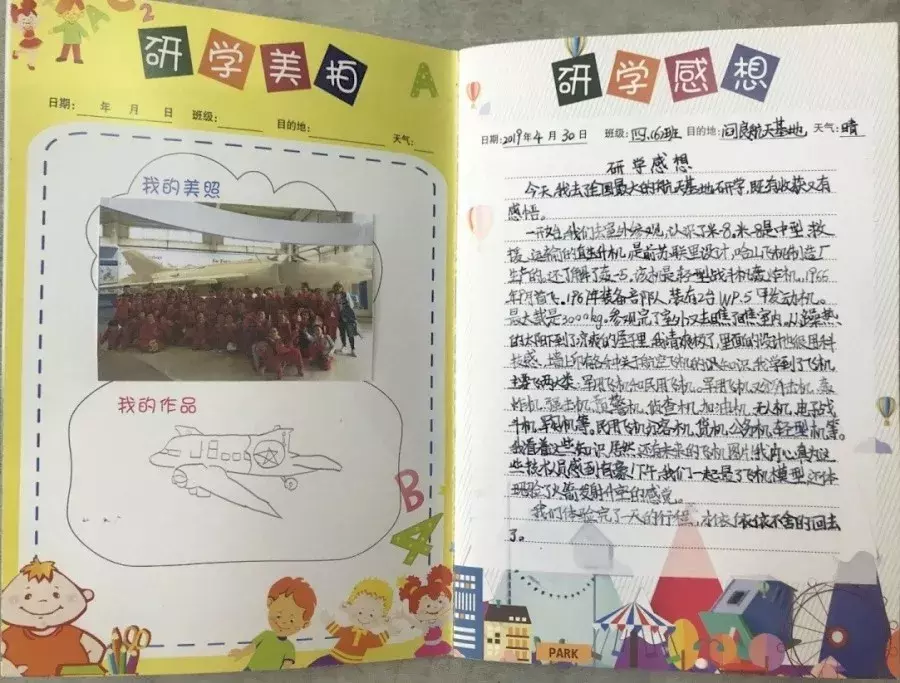 研学美拍
日期: 年 月 日 班级: 目的地: 天气:
我的美照
我的作品
研学感想
日期:2019年4月30日 班级:四.(6)班 目的地:问良航天基地 天气:晴
研学感想
今天,我去全国最大的航天基地研学,既有收获又有
感悟。
一开始,我们去室外参观,认识了米-8,米-8是中型救
援、运输的直升机,是前苏联里设计,喀山飞机制造厂
生产的,还了解了轰-5,该机是轻型战术轰炸机,1966
年9月首飞,1967年装备部队,装有2台WP.5甲发动机。
最大载是3000kg。参观完了室外又去瞧瞧室内,从躁热
的太阳下到了凉爽的屋子里,我清爽极了,里面的设计也很具科
技感,墙上印着各种关于航空飞机的知识,我学到了飞机
主要飞两大类,军用飞机和民用飞机,军用飞机又分歼击机,轰
炸机,强击机,预警机,侦查机,加油机,无人机,电子战
斗机,舰载机等。民用飞机分客机,货机,公务机,轻型机等。
我看着这些知识,居然还有未来的飞机图片,我内心真为这
些技术人员感到自豪!下午,我们一起做了飞机模型,还体
验了火箭发射升空的感觉。
我们体验完了一天的行程,依依不舍的回去
了。
PARK